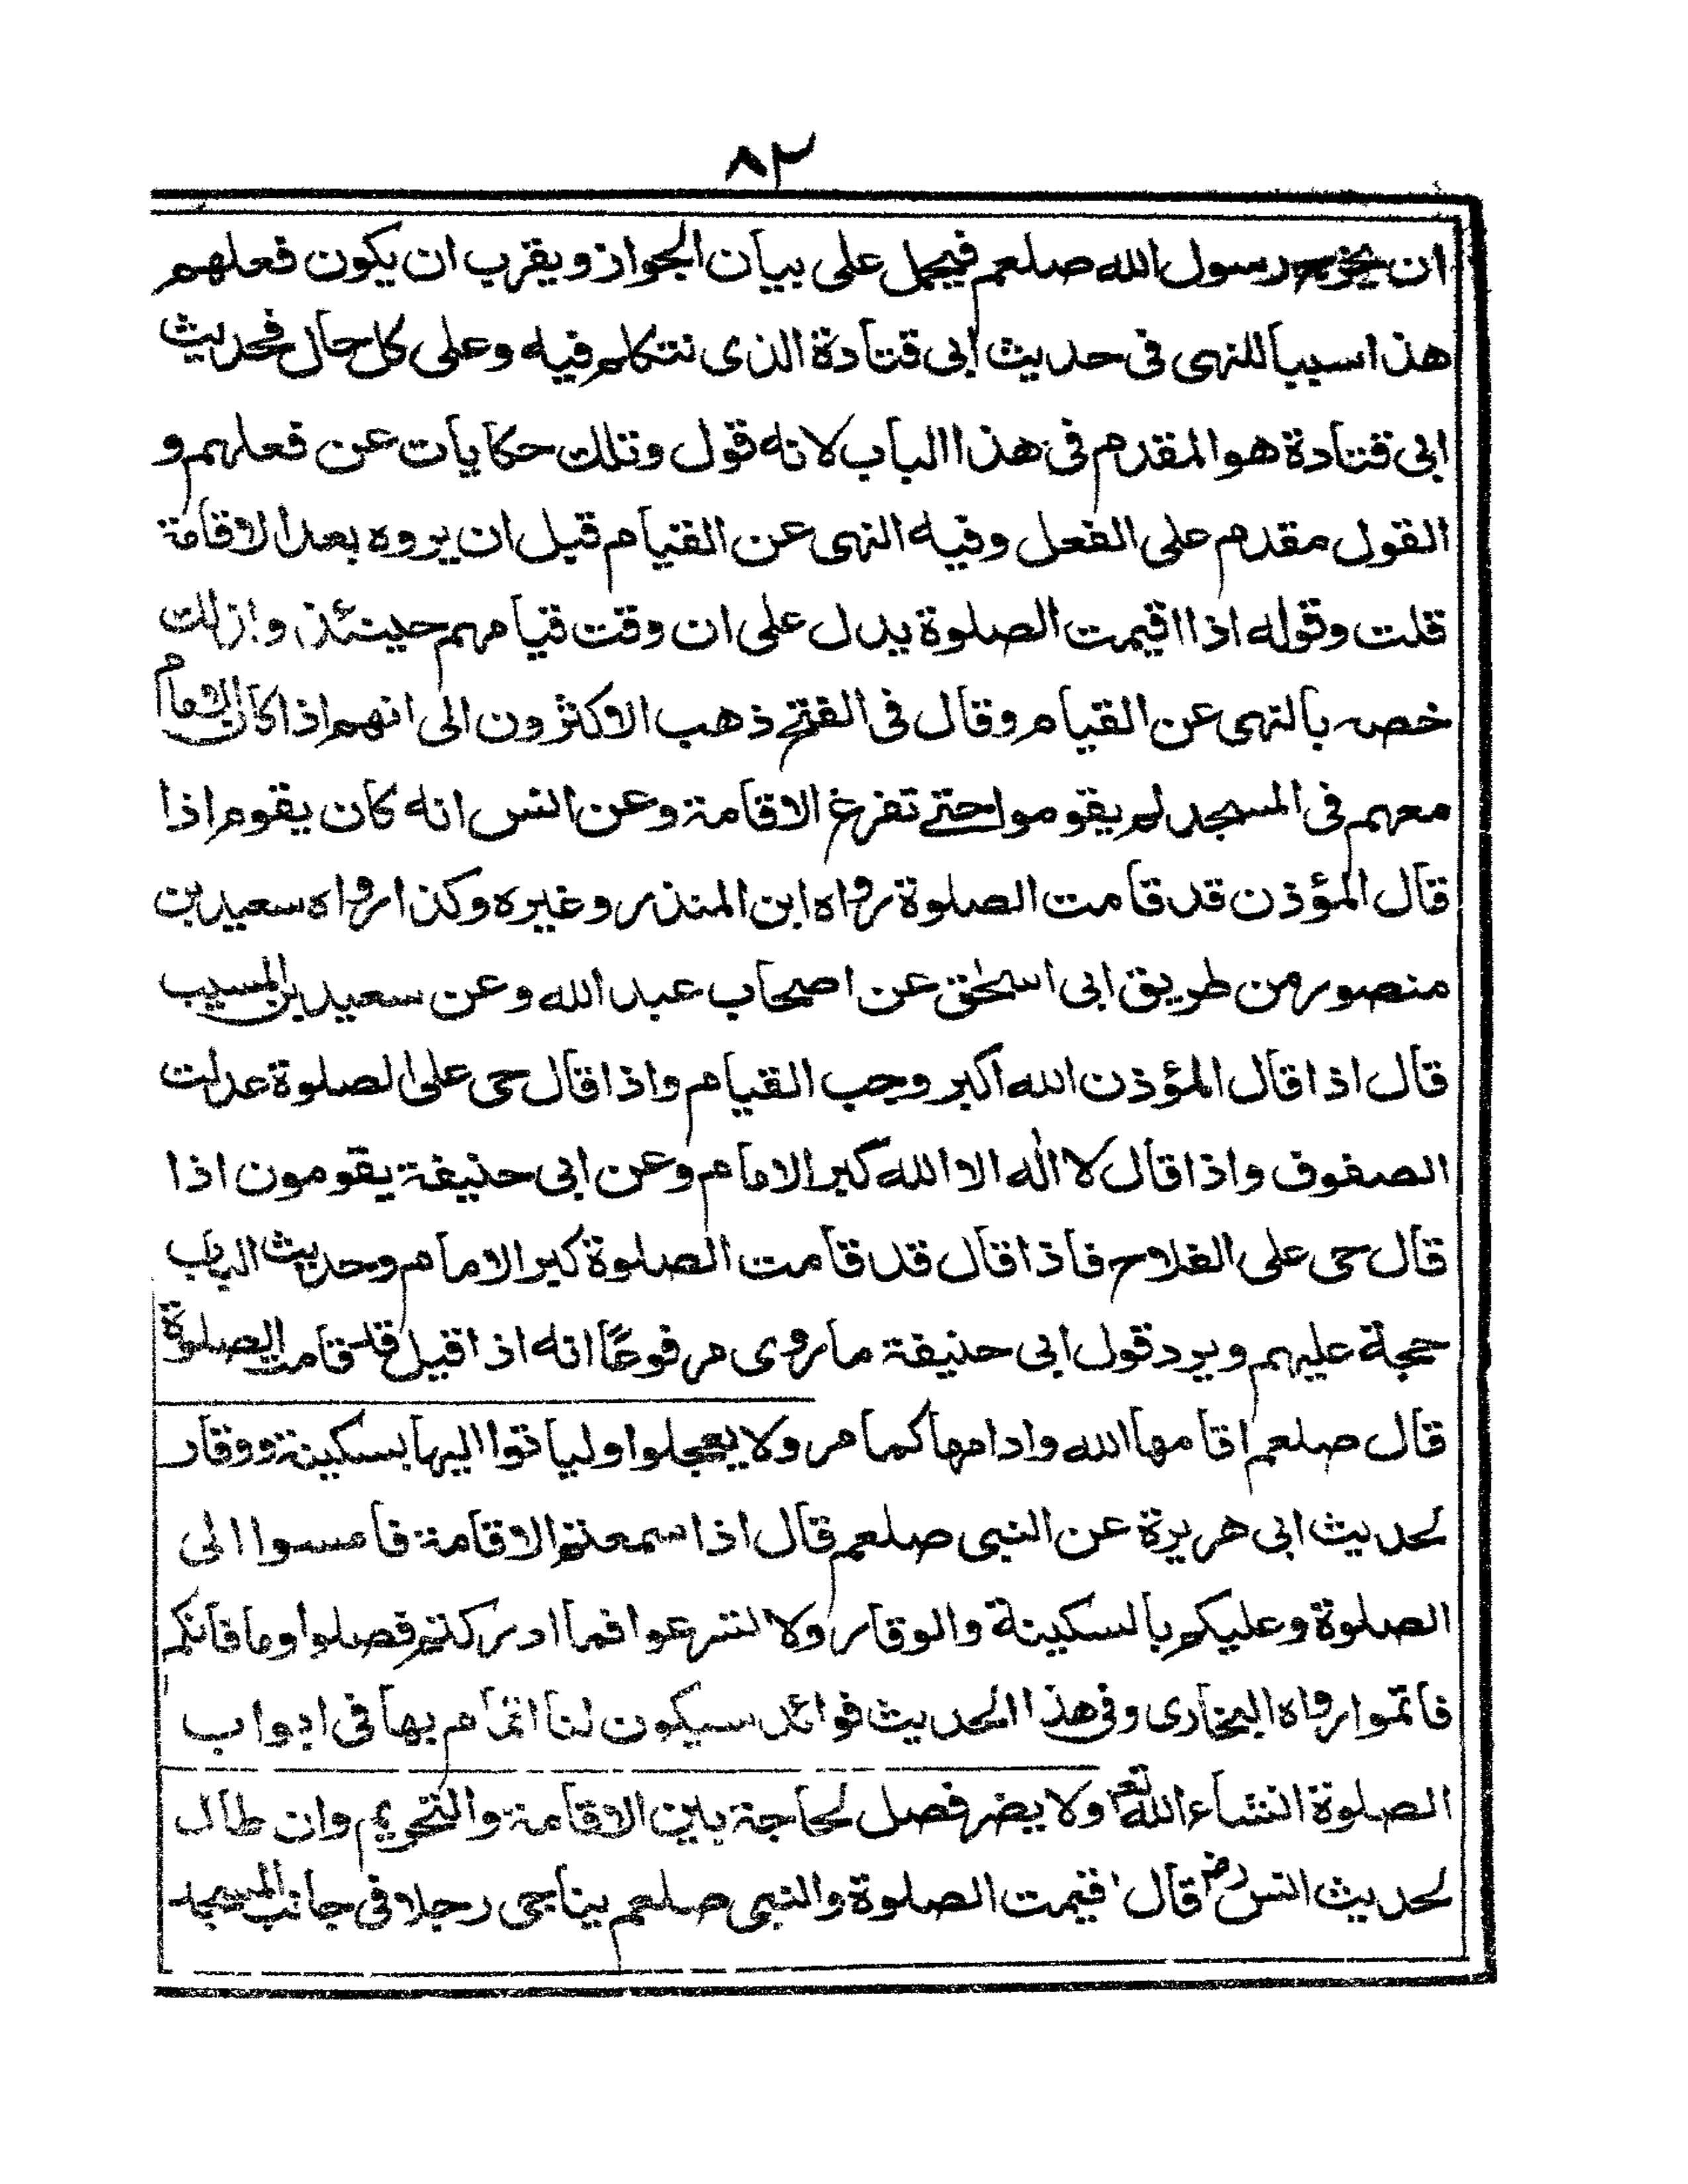 ٨٢
ان يخرج رسول الله صلعم فيحمل على بيان الجواز ويقرب ان يكون فعلهم
هذا سببا للنهى فى حديث ابى قتادة الذى نتكلم فيه وعلى كل حال فحديث
ابى قتادة هو المقدم فى هذا الباب لانه قول وتلك حكايات عن فعلهم و
القول مقدم على الفعل وفيه النهى عن القيام قبل ان يروه بعد الاقامة
قلت وقوله اذا اقيمت الصلوة يدل على ان وقت قيامهم حينئذ وان
خصه بالنهى عن القيام وقال فى الفتح ذهب الاكثرون الى انهم اذا كان الامام
معهم فى المسجد لم يقوموا حتى تفرغ الاقامة وعن انس انه كان يقوم اذا
قال المؤذن قد قامت الصلوة رواه ابن المنذر وغيره وكذا رواه سعيد بن
منصور من طريق ابى اسحٰق عن اصحاب عبد الله وعن سعيد بن المسيب
قال اذا قال المؤذن الله اكبر وجب القيام واذا قال حى على الصلوة عدلت
الصفوف واذا قال لا الٰه الا الله كبر الامام وعن ابى حنيفة يقومون اذا
قال حى على الفلاح فاذا قال قد قامت الصلوة كبر الامام وحديث الباب
حجة عليهم ويرد قول ابى حنيفة ما روى مرفوعًا انه اذا قيل قد قامت الصلوة
قال صلعم اقامها الله وادامها كما مر ولا يعجلوا ولياتوا اليها بسكينة ووقار
لحديث ابى هريرة عن النبى صلعم قال اذا سمعتم الاقامة فامسوا الى
الصلوة وعليكم بالسكينة والوقار ولا تسرعوا فما ادركتم فصلوا وما فاتكم
فاتموا رواه البخارى وفى هذا الحديث فوائد سيكون لنا المام بها فى ابواب
الصلوة انشاء الله تعا ولا يضر فصل لحاجة بين الاقامة والتحريم وان طال
لحديث انس رضـ قال اقيمت الصلوة والنبى صلعم يناجى رجلا فى جانب المسجد